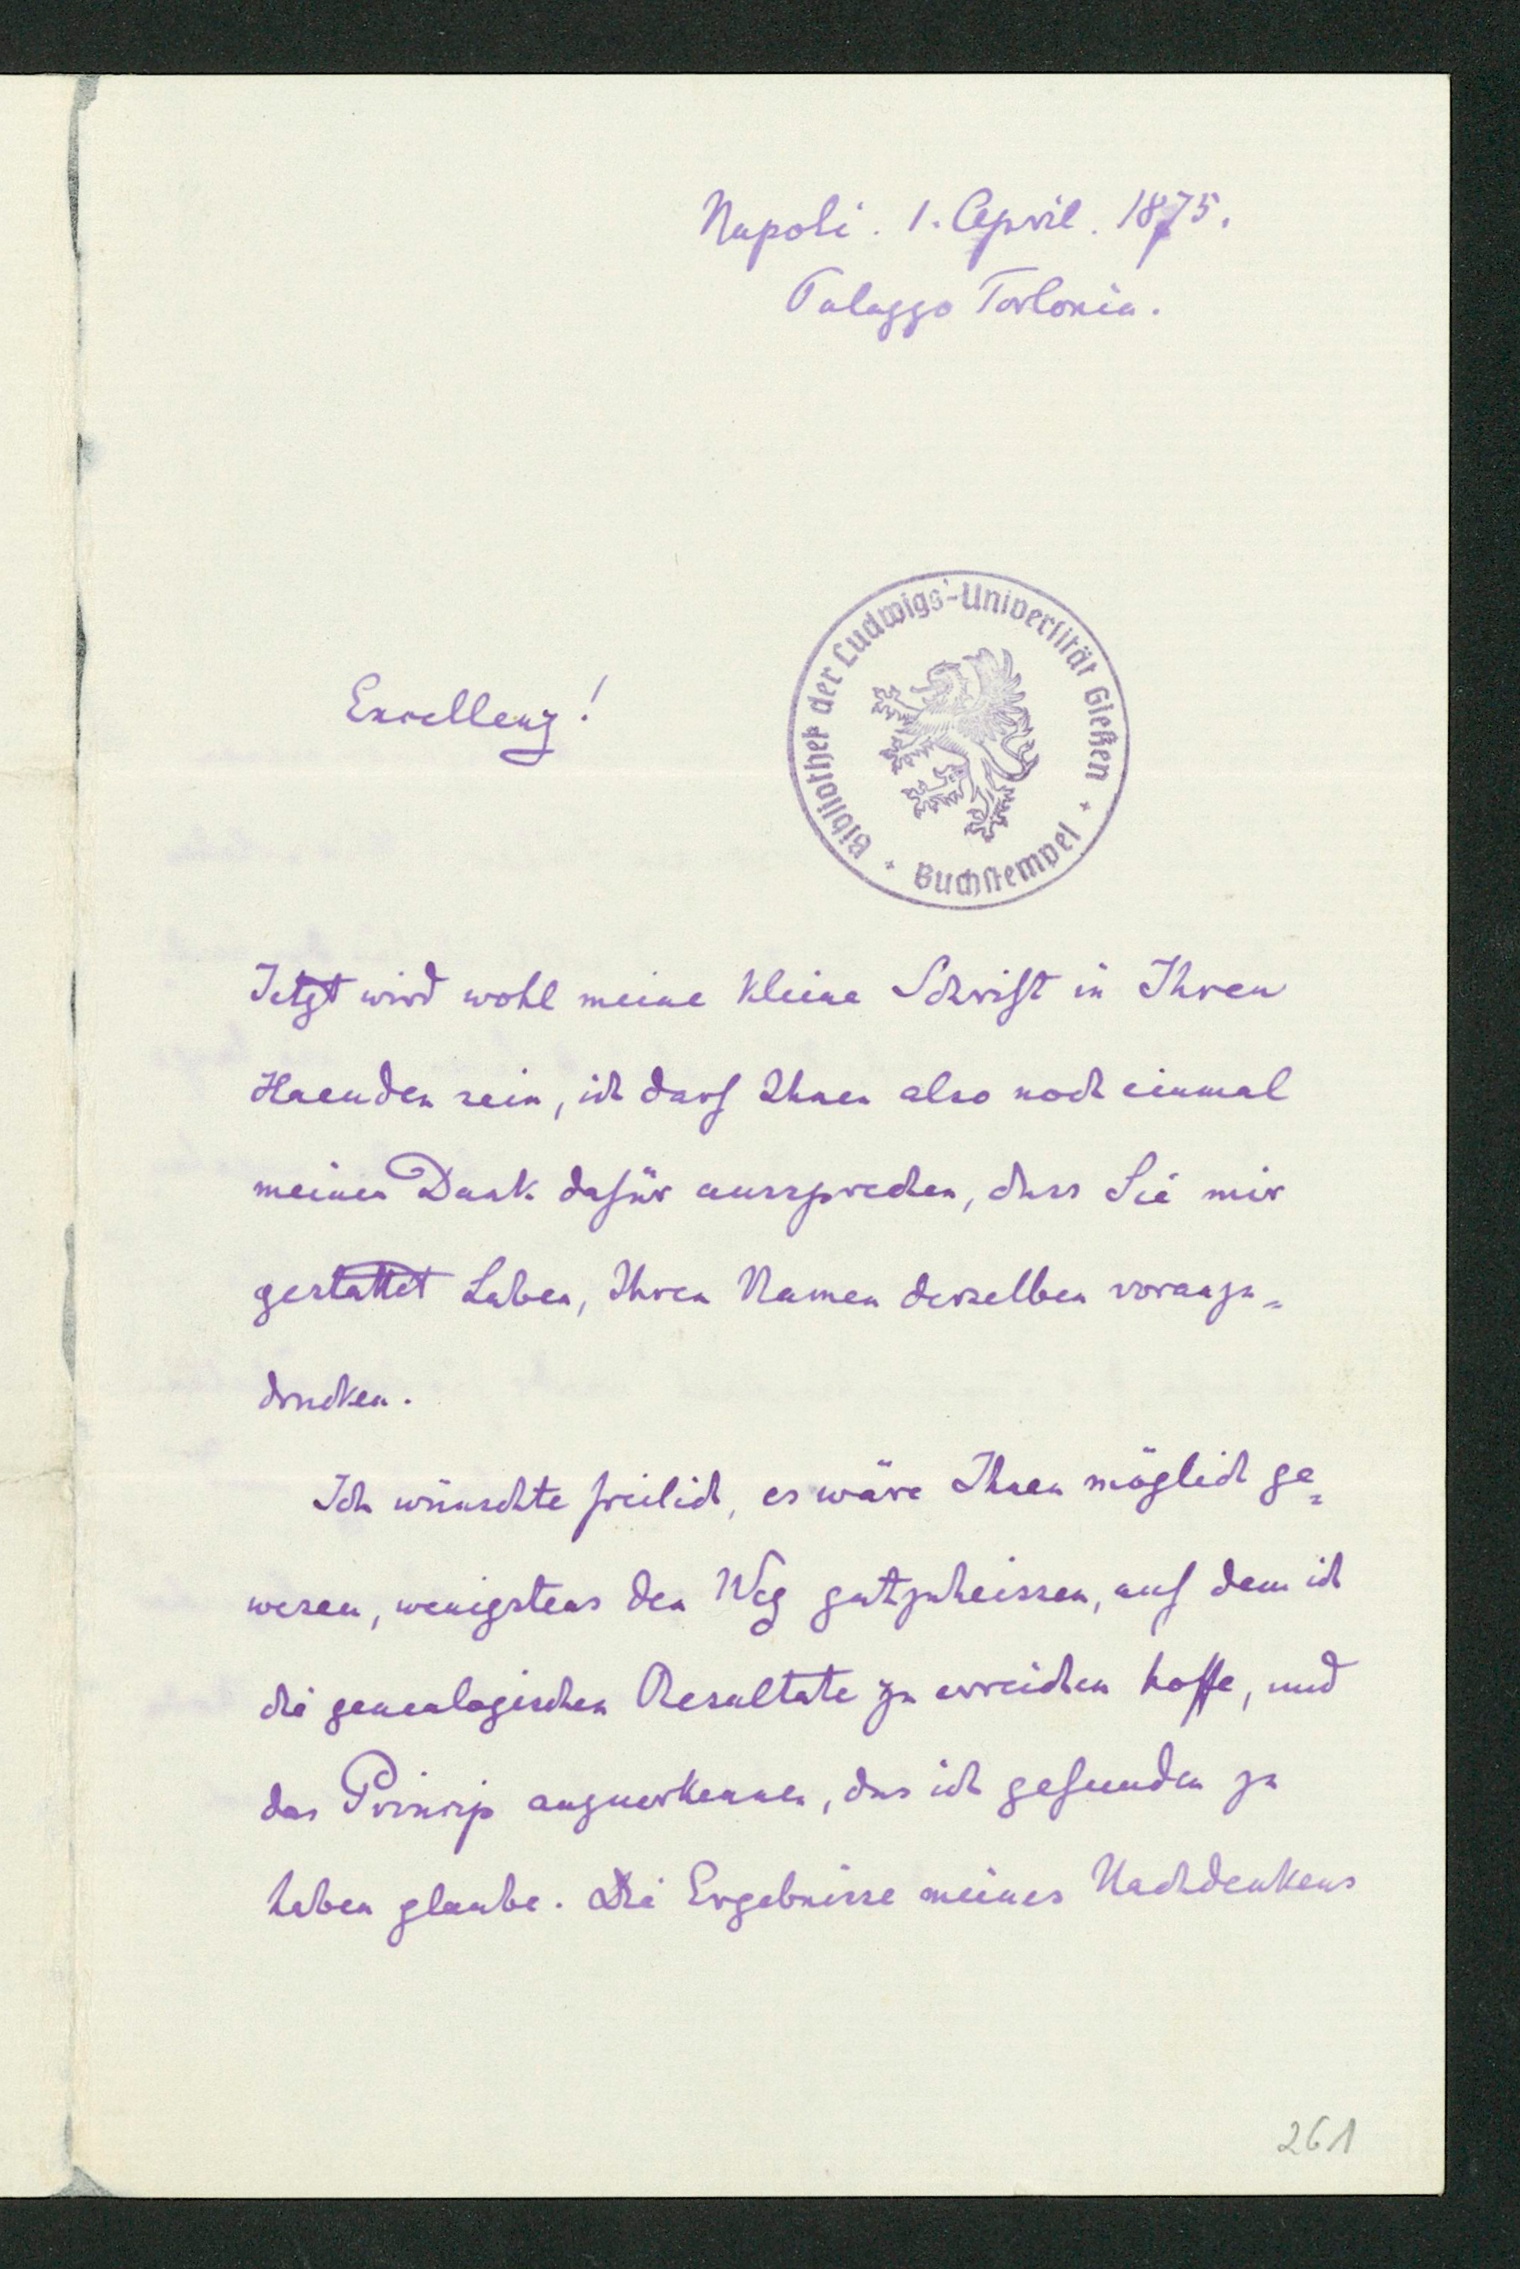 Napoli. 1. April. 1875.
Palazzo Torlonia.
Excellenz!
Bibliothek der Ludwigs-Universität Gießen
Buchstempel
Jetzt wird wohl meine kleine Schrift in Ihren
Haenden sein, ich darf Ihnen also noch einmal
meinen Dank dafür aussprechen, dass Sie mir
gestattet haben, Ihren Namen derselben voranzu=
drucken.
Ich wünschte freilich, es wäre Ihnen möglich ge=
wesen, wenigstens den Weg gutzuheissen, auf dem ich
die genealogischen Resultate zu erreichen hoffe, und
das Princip anzuerkennen, das ich gefunden zu
haben glaube. Die Ergebnisse meines Nachdenkens
261